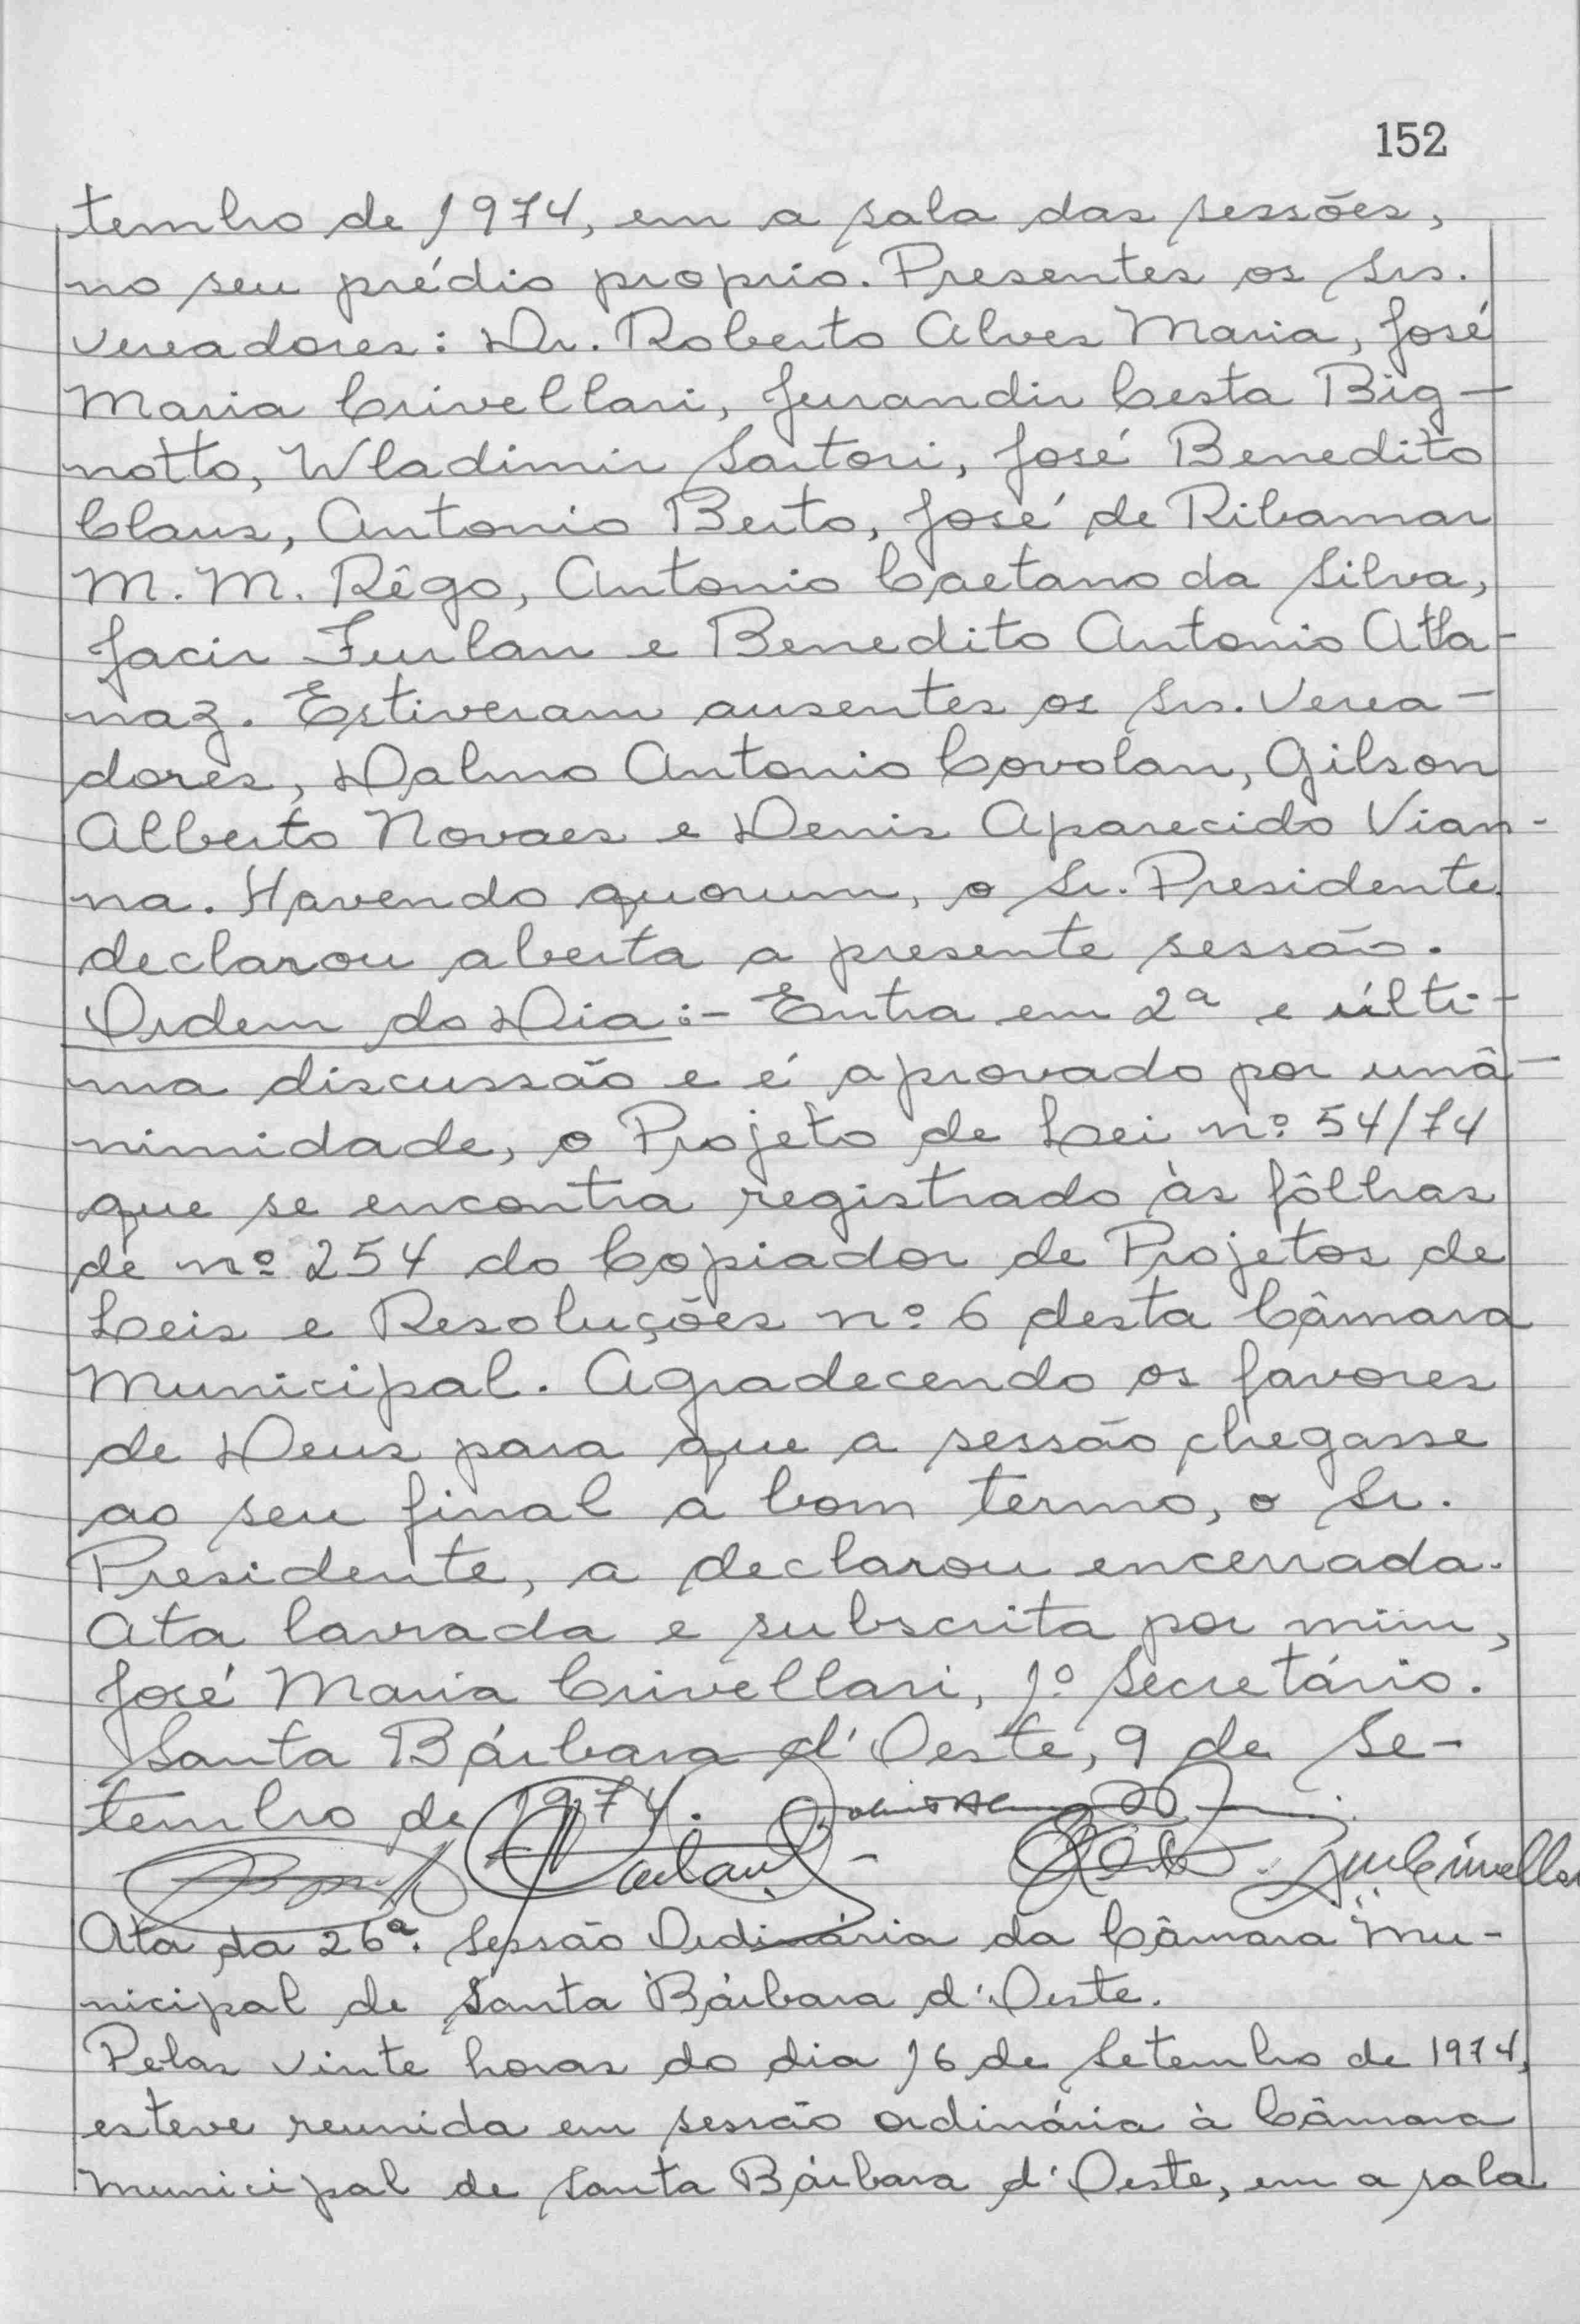 152
tembro de 1974, em a sala das sessões,
no seu prédio proprio. Presentes os Srs.
Vereadores: Dr. Roberto Alves Maria, José
Maria Crivellari, Jurandir Cesta Big-
notto, Wladimir Sartori, José Benedito
Claus, Antonio Berto, José de Ribamar
M. M. Rêgo, Antonio Caetano da Silva,
Jacir Furlan e Benedito Antonio Atta-
naz. Estiveram ausentes os Srs. Verea-
dores, Dalmo Antonio Covolan, Gilson
Alberto Novaes e Denis Aparecido Vian-
na. Havendo quorum, o Sr. Presidente
declarou aberta a presente sessão.
Ordem do Dia:- Entra em 2ª e últi-
ma discussão e é aprovado por unâ-
nimidade, o Projeto de Lei nº 54/74
que se encontra registrado às fôlhas
de nº 254 do Copiador de Projetos de
Leis e Resoluções nº 6 desta Câmara
Municipal. Agradecendo os favores
de Deus para que a sessão chegasse
ao seu final a bom termo, o Sr.
Presidente, a declarou encerrada.
Ata lavrada e subscrita por mim,
José Maria Crivellari, 1º Secretário.
Santa Bárbara d'Oeste, 9 de Se-
tembro de 1974.
Ata da 26ª. Sessão Ordinária da Câmara Mu-
nicipal de Santa Bárbara d'Oeste.
Pelas vinte horas do dia 16 de Setembro de 1974,
esteve reunida em sessão ordinária à Câmara
Municipal de Santa Bárbara d'Oeste, em a sala